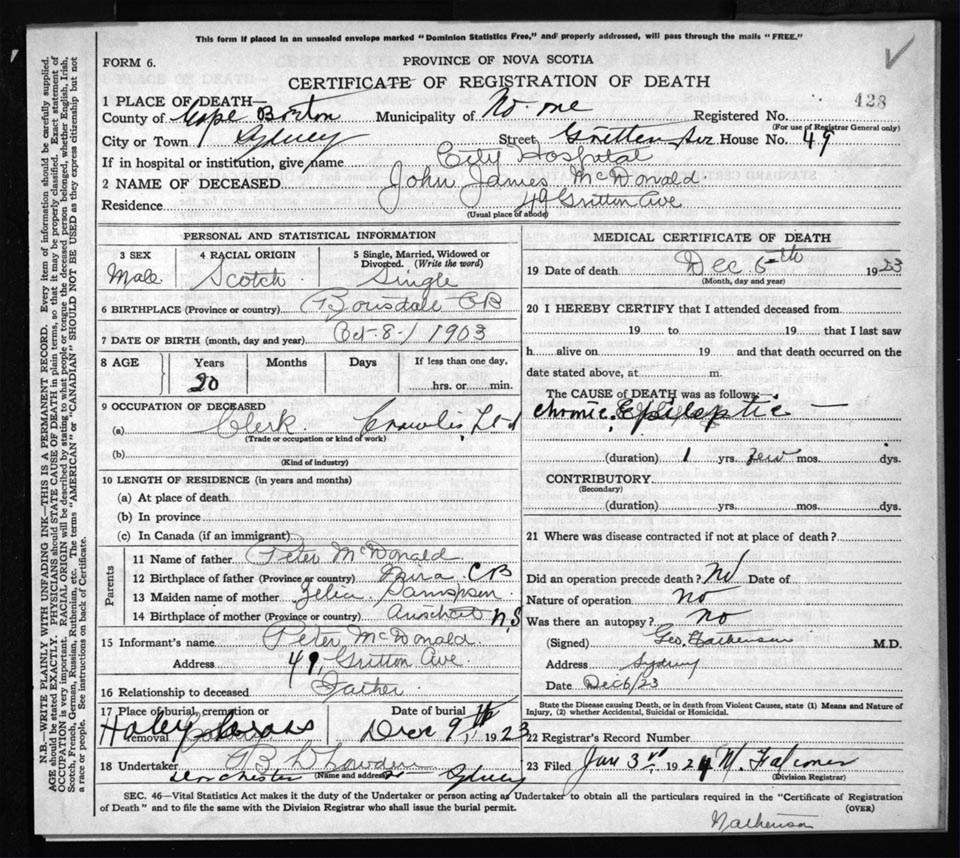 This form if placed in an unsealed envelope marked "Dominion Statistics Free," and properly addressed, will pass through the mails "FREE."
FORM 6.
PROVINCE OF NOVA SCOTIA
CERTIFICATE OF REGISTRATION OF DEATH
1 PLACE OF DEATH—
County of Cape Breton Municipality of No. one Registered No. 428
(For use of Registrar General only)
City or Town Sydney Street Gritten Ave House No. 49
If in hospital or institution, give name City Hospital
2 NAME OF DECEASED John James McDonald
Residence 49 Gritton Ave
(Usual place of abode)
PERSONAL AND STATISTICAL INFORMATION
3 SEX Male
4 RACIAL ORIGIN Scotch
5 Single, Married, Widowed or Divorced. (Write the word) Single
6 BIRTHPLACE (Province or country) CB
7 DATE OF BIRTH (month, day and year) Oct-8-1903
8 AGE Years 20 Months Days If less than one day, hrs. or min.
9 OCCUPATION OF DECEASED
(a) Clerk Ltd
(Trade or occupation or kind of work)
(b)
(Kind of industry)
10 LENGTH OF RESIDENCE (in years and months)
(a) At place of death
(b) In province
(c) In Canada (if an immigrant)
Parents
11 Name of father Peter McDonald
12 Birthplace of father (Province or country) Mira CB
13 Maiden name of mother Sampson
14 Birthplace of mother (Province or country) NS
15 Informant's name Peter McDonald
Address 49, Gritton Ave.
16 Relationship to deceased Father
17 Place of burial, cremation or removal Holey Cross
Date of burial Dec 9th, 1923
18 Undertaker
(Name and address) Dorchester St Sydney
MEDICAL CERTIFICATE OF DEATH
19 Date of death Dec. 6th 1923
(Month, day and year)
20 I HEREBY CERTIFY that I attended deceased from
19 to 19 that I last saw
h alive on 19 and that death occurred on the
date stated above, at m.
The CAUSE OF DEATH was as follows:
Chronic Epileptic
(duration) 1 yrs. few mos. dys.
CONTRIBUTORY
(Secondary)
(duration) yrs. mos. dys.
21 Where was disease contracted if not at place of death?
Did an operation precede death? No Date of
Nature of operation No
Was there an autopsy? No
(Signed) Geo. M.D.
Address Sydney
Date Dec 6/23
State the Disease causing Death, or in death from Violent Causes, state (1) Means and Nature of Injury, (2) whether Accidental, Suicidal or Homicidal.
22 Registrar's Record Number
23 Filed Jan 3rd, 1924 M. Falconer
(Division Registrar)
SEC. 46—Vital Statistics Act makes it the duty of the Undertaker or person acting as Undertaker to obtain all the particulars required in the "Certificate of Registration
of Death" and to file the same with the Division Registrar who shall issue the burial permit.
(OVER)
N.B.—WRITE PLAINLY WITH UNFADING INK—THIS IS A PERMANENT RECORD. Every item of information should be carefully supplied.
AGE should be stated EXACTLY. PHYSICIANS should STATE CAUSE OF DEATH in plain terms, so that it may be properly classified. Exact statement of
OCCUPATION is very important. RACIAL ORIGIN will be described by stating to what people or tongue the deceased person belonged, whether English, Irish,
Scotch, French, German, Russian, Ruthenian, etc. The terms "AMERICAN" or "CANADIAN" SHOULD NOT BE USED as they express citizenship but not
a race or people. See instructions on back of Certificate.